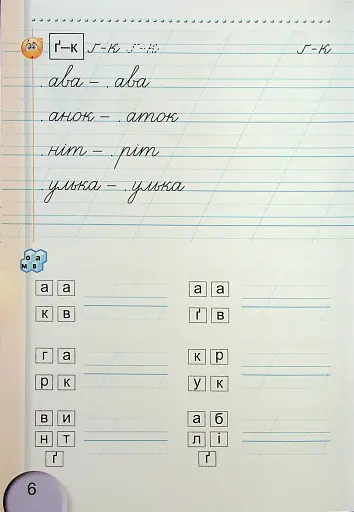 ґ–к г-к г-к г-к
.ава – .ава
.анок – .аток
.ніт – .ріт
.улька – .улька
о а
м в
а а а а
к в ґ в
г а к р
р к у к
в и а б
н т л і
ґ ґ
6